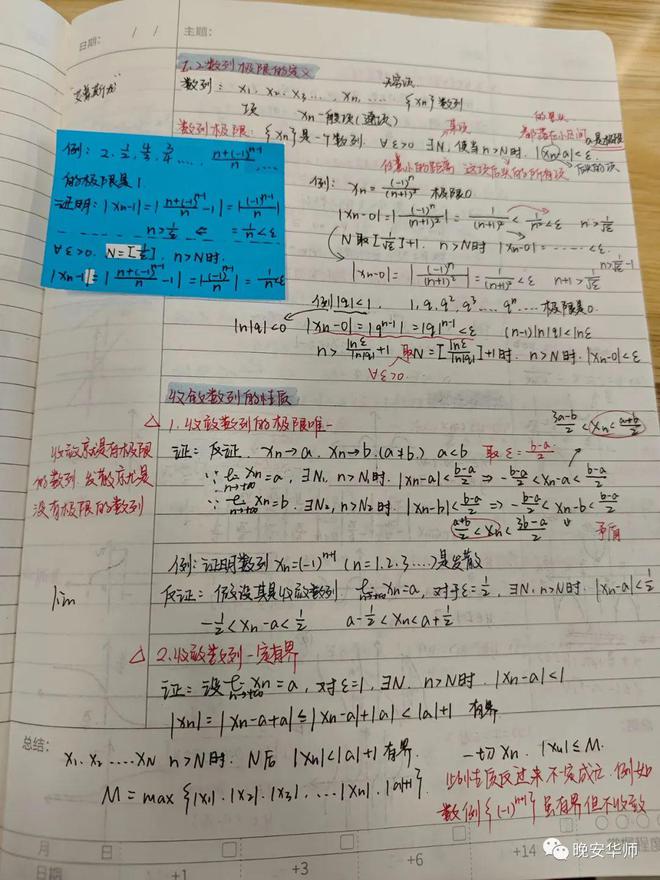 日期: / / 主题:
1.2数列极限的定义
数列: x₁, x₂, x₃..., xₙ, .... {xₙ}数列
项 xₙ一般项(通项)
"艾普斯龙"
数列极限: {xₙ}是一个数列. ∀ε>0 ∃N, 使当n>N时. |xₙ-a|<ε. a是极限
任意小的距离 这项后头的所有项
例: 2, 1/2, 4/3, 3/4, .... (n+(-1)ⁿ⁻¹)/n
的极限是1
证明: |xₙ-1|=|(n+(-1)ⁿ⁻¹)/n -1|=|(-1)ⁿ⁻¹/n|
n>1/ε ⇐ =1/n<ε
∀ε>0. N=[1/ε], n>N时
|xₙ-1|=|(n+(-1)ⁿ⁻¹)/n -1|=|(-1)ⁿ⁻¹/n|=1/n<ε
例: xₙ=(-1)ⁿ/(n+1)² 极限0
|xₙ-0|=|(-1)ⁿ/(n+1)²|=1/(n+1)²<1/n²<ε n>1/√ε
N取[1/√ε]+1. n>N时 |xₙ-0|=.....<ε.
n>1/√ε-1
|xₙ-0|=|(-1)ⁿ/(n+1)²|=1/(n+1)²<ε n+1>1/√ε
例|q|<1, 1, q, q², q³, ... qⁿ.... 极限是0.
ln|q|<0 |xₙ-0|=|qⁿ⁻¹|=|q|ⁿ⁻¹<ε (n-1)ln|q|<lnε
n>lnε/ln|q|+1 取N=[lnε/ln|q|]+1时. n>N时. |xₙ-0|<ε
∀ε>0
收敛数列的性质
△1.收敛数列的极限唯一
(3a-b)/2<xₙ<(a+b)/2
收敛就是有极限
的数列 发散就是
没有极限的数列
证: 反证. xₙ→a, xₙ→b.(a≠b) a<b 取ε=(b-a)/2
∵ lim n→+∞ xₙ=a, ∃N₁, n>N₁时. |xₙ-a|<(b-a)/2 ⇒ -(b-a)/2<xₙ-a<(b-a)/2
∵ lim n→+∞ xₙ=b. ∃N₂, n>N₂时. |xₙ-b|<(b-a)/2 ⇒ -(b-a)/2<xₙ-b<(b-a)/2
(a+b)/2<xₙ<(3b-a)/2 矛盾
例: 证明数列 xₙ=(-1)ⁿ⁺¹ (n=1.2.3....)是发散
lim
反证: 假设其是收敛数列 lim n→+∞ xₙ=a, 对于ε=1/2, ∃N. n>N时. |xₙ-a|<1/2
-1/2<xₙ-a<1/2 a-1/2<xₙ<a+1/2
△2.收敛数列一定有界
证: 设lim n→+∞ xₙ=a, 对ε=1, ∃N. n>N时. |xₙ-a|<1
|xₙ|=|xₙ-a+a|≤|xₙ-a|+|a|<|a|+1 有界
总结:
x₁. x₂ .... xN n>N时. N后 |xₙ|<|a|+1 有界. 一切xₙ. |xₙ|≤M.
M=max{|x₁|.|x₂|.|x₃|. ...|xN|.|a|+1}.
性质反过来不一定成立. 例如
数列{(-1)ⁿ⁺¹}虽有界但不收敛
月 日
日期 +1 +3 +6 +14
晚安华师